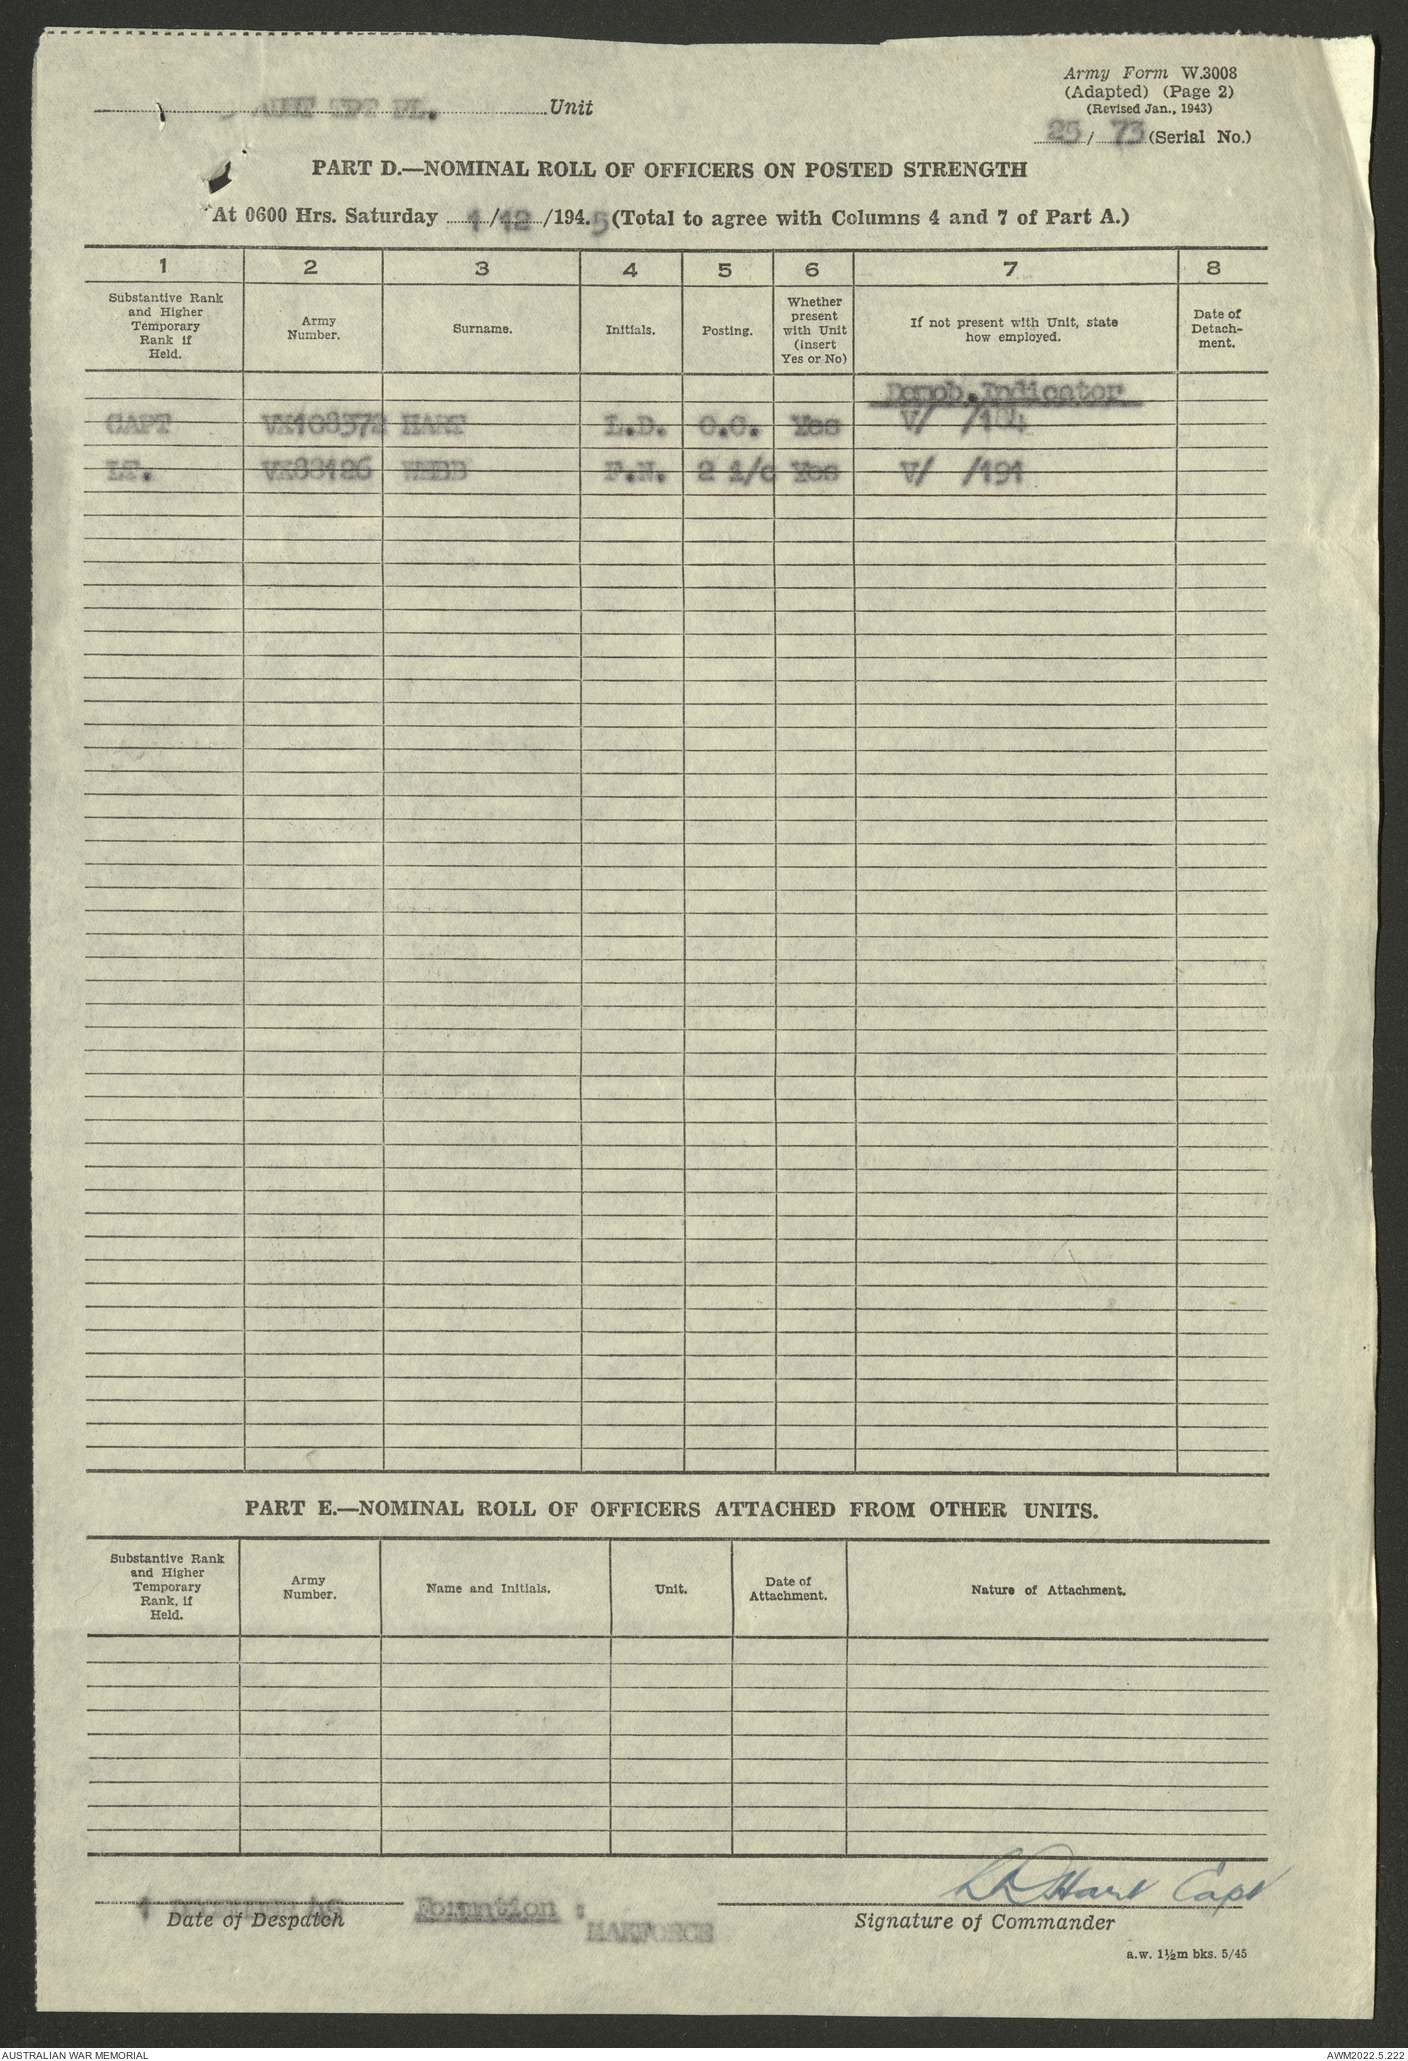 Army Form W.3008
(Adapted) (Page 2)
(Revised Jan., 1943)
AUST TPT PL. Unit
25/73 (Serial No.)
PART D.—NOMINAL ROLL OF OFFICERS ON POSTED STRENGTH
At 0600 Hrs. Saturday 1/12/1945 (Total to agree with Columns 4 and 7 of Part A.)
1 2 3 4 5 6 7 8
Substantive Rank and Higher Temporary Rank if Held. Army Number. Surname. Initials. Posting. Whether present with Unit (insert Yes or No) If not present with Unit, state how employed. Date of Detach-ment.
Demob. Indicator
CAPT VX108372 HART L.D. O.C. Yes V/ /184
LT. VX88126 WEBB F.N. 2 i/c Yes V/ /191
PART E.—NOMINAL ROLL OF OFFICERS ATTACHED FROM OTHER UNITS.
Substantive Rank and Higher Temporary Rank, if Held. Army Number. Name and Initials. Unit. Date of Attachment. Nature of Attachment.
LD Hart Capt
1 DECEMBER 45 Formation :
Date of Despatch MAKFORCE Signature of Commander
a.w. 1½m bks. 5/45
AUSTRALIAN WAR MEMORIAL AWM2022.5.222